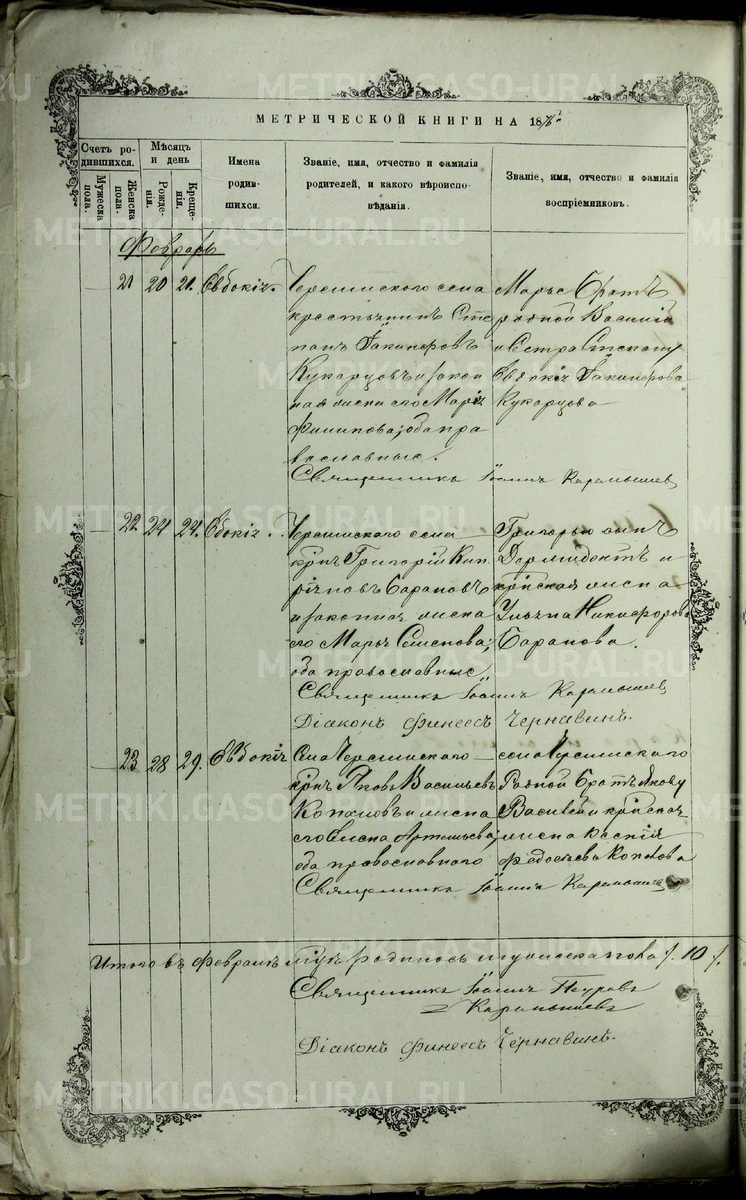 МЕТРИЧЕСКОЙ КНИГИ НА 187
Счетъ родившихся.
Мѣсяцъ и день
Имена родившихся.
Званіе, имя, отчество и фамилія родителей, и какого вѣроисповѣданія.
Званіе, имя, отчество и фамилія воспріемниковъ.
Мужеска пола.
Женска пола.
Рожденія.
Крещенія.
Февраль
21 20 21. Евдокія.
Черемискаго села
крестьянинъ Сте
панъ Іакинфовъ
Кукарцовъ и закон
ная жена его Марія
Филипова; оба пра
вославные.
Священникъ Іоаннъ Карамышев
Марьѣ братъ
родной Василій
и сестра Степану
Евдокія Іакинфова
Кукарцова
22 24 24. Евдокія.
Черемискаго села
крнъ Григорій Кип
ріяновъ Барановъ
и законная жена
его Марья Семенова;
оба православные.
Священникъ Іоаннъ Карамышев
Діаконъ Финеесъ Чернавинъ.
Григорью сынъ
Дормидонтъ и
крнская жена
Ульяна Никифорова
Баранова.
23 28 29. Евдокія
села Черемискаго
крнъ Яковъ Васильевъ
Копаловъ и жена
его Елена Артемьева;
оба православнаго
Священникъ Іоаннъ Карамышев
села Черемискаго
родной братъ Якову
Василій и крнская
жена Ксенія
Федосѣева Копалова
Итого въ февралѣ м-цѣ родилось мужеска пола 10
Священникъ Іоаннъ Петровъ
Карамышевъ
Діаконъ Финеесъ Чернавинъ.
METRIKI.GASO-URAL.RU